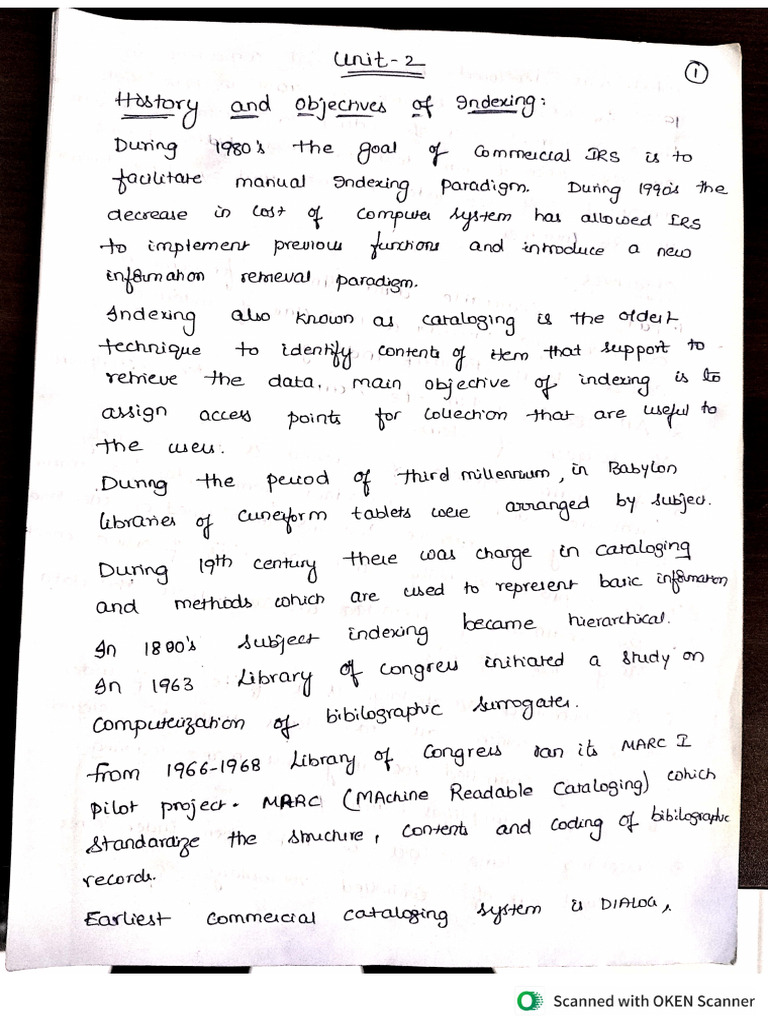 Unit-2
1
History and Objectives of Indexing:
During 1980's the goal of commercial IRS is to
facilitate manual Indexing paradigm. During 1990's the
decrease in cost of computer system has allowed IRS
to implement previous functions and introduce a new
information retrieval paradigm.
Indexing also known as cataloging is the oldest
technique to identify contents of item that support to
retrieve the data. main objective of indexing is to
assign access points for collection that are useful to
the users.
During the period of third millennium, in Babylon
libraries of cuneiform tablets were arranged by subject.
During 19th century there was change in cataloging
and methods which are used to represent basic information
In 1800's subject indexing became hierarchical.
In 1963 Library of congress initiated a study on
computerization of bibilographic surrogates.
from 1966-1968 Library of Congress ran its MARC I
pilot project. MARC (MAchine Readable Cataloging) which
standardize the structure, contents and coding of bibilographic
records.
Earliest commercial cataloging system is DIALOG,
Scanned with OKEN Scanner